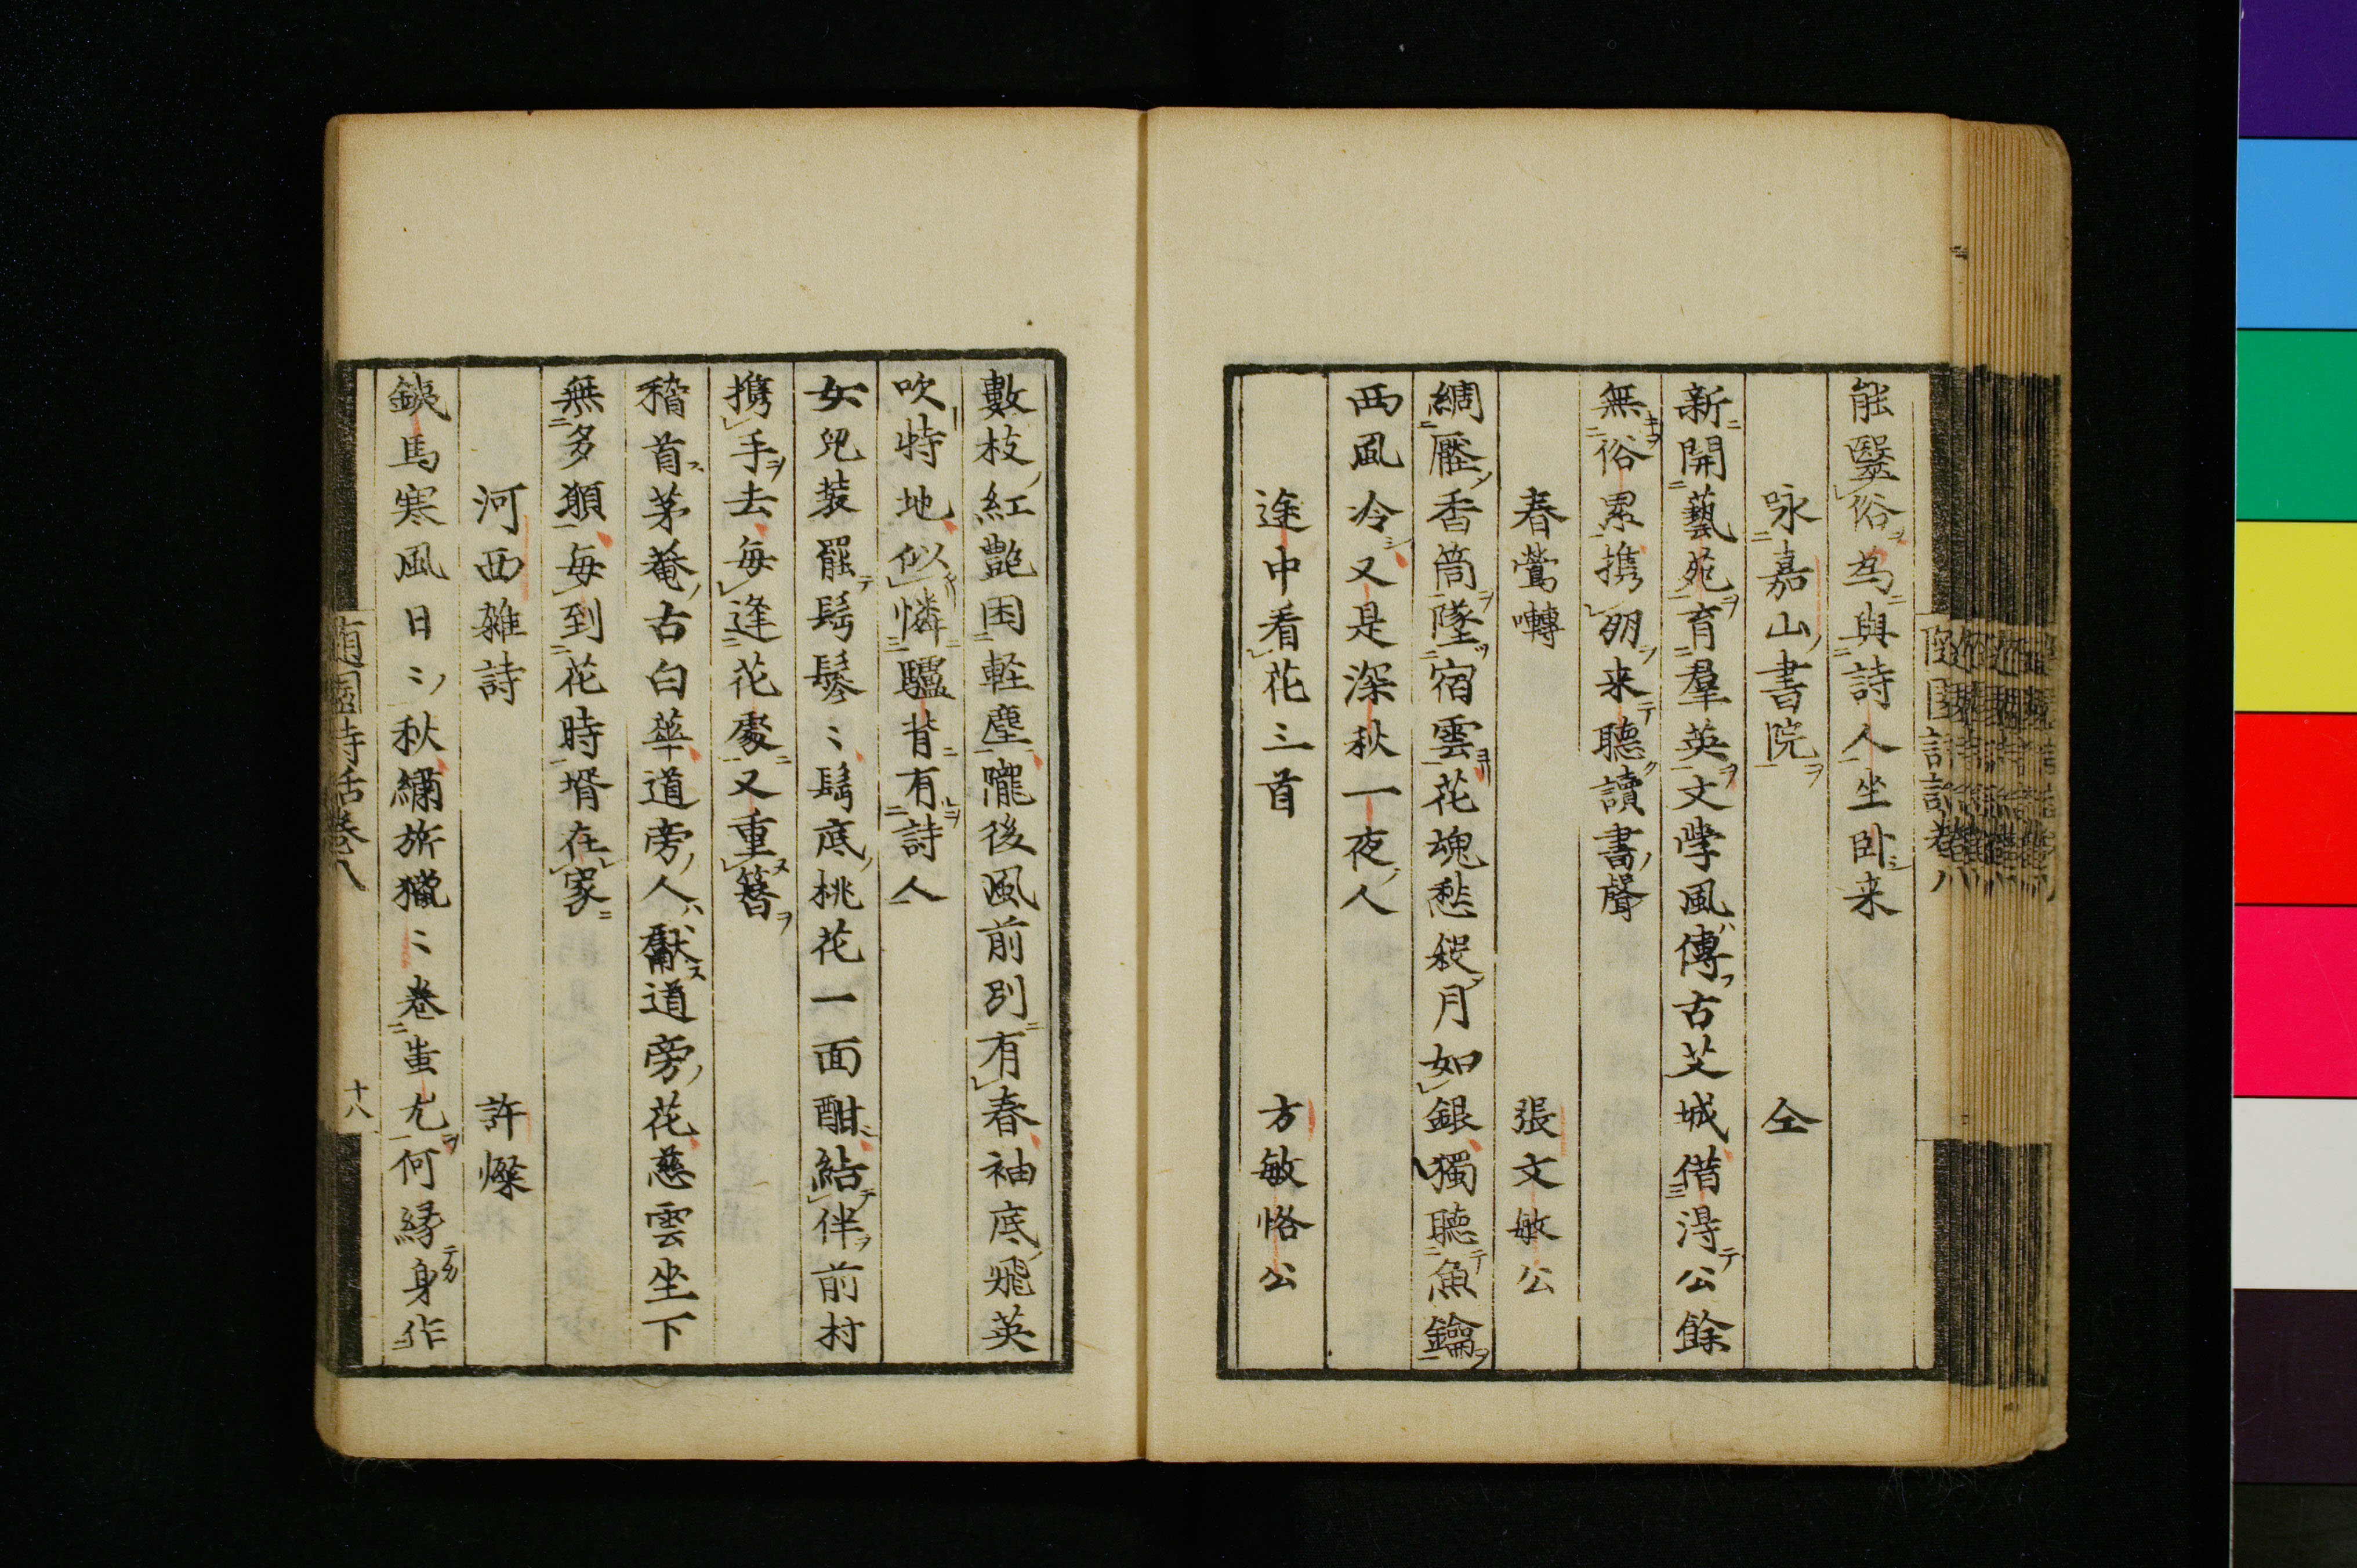 能醫俗為與詩人坐卧来
咏嘉山書院 仝
新開藝苑育羣英文學風傳古芝城借得公餘
無俗累攜朋来聽讀書聲
春鶯囀 張文敏公
綢壓香筒墜宿雲花魂愁殺月如銀獨聽魚鑰
西風冷又是深秋一夜人
途中看花三首 方敏恪公
數枝紅艶困軽塵隴後風前別有春袖底飛英
吹特地似憐驢背有詩人
女児装罷髩鬖〻髩底桃花一面酣結伴前村
攜手去毎逢花處又重簪
稽首茅菴古白華道旁人獻道旁花慈雲坐下
無多願毎到花時壻在家
河西雑詩 許燦
銕馬寒風日〻秋繡旂獵〻卷蚩尤何縁身作
随園詩話巻八
十八